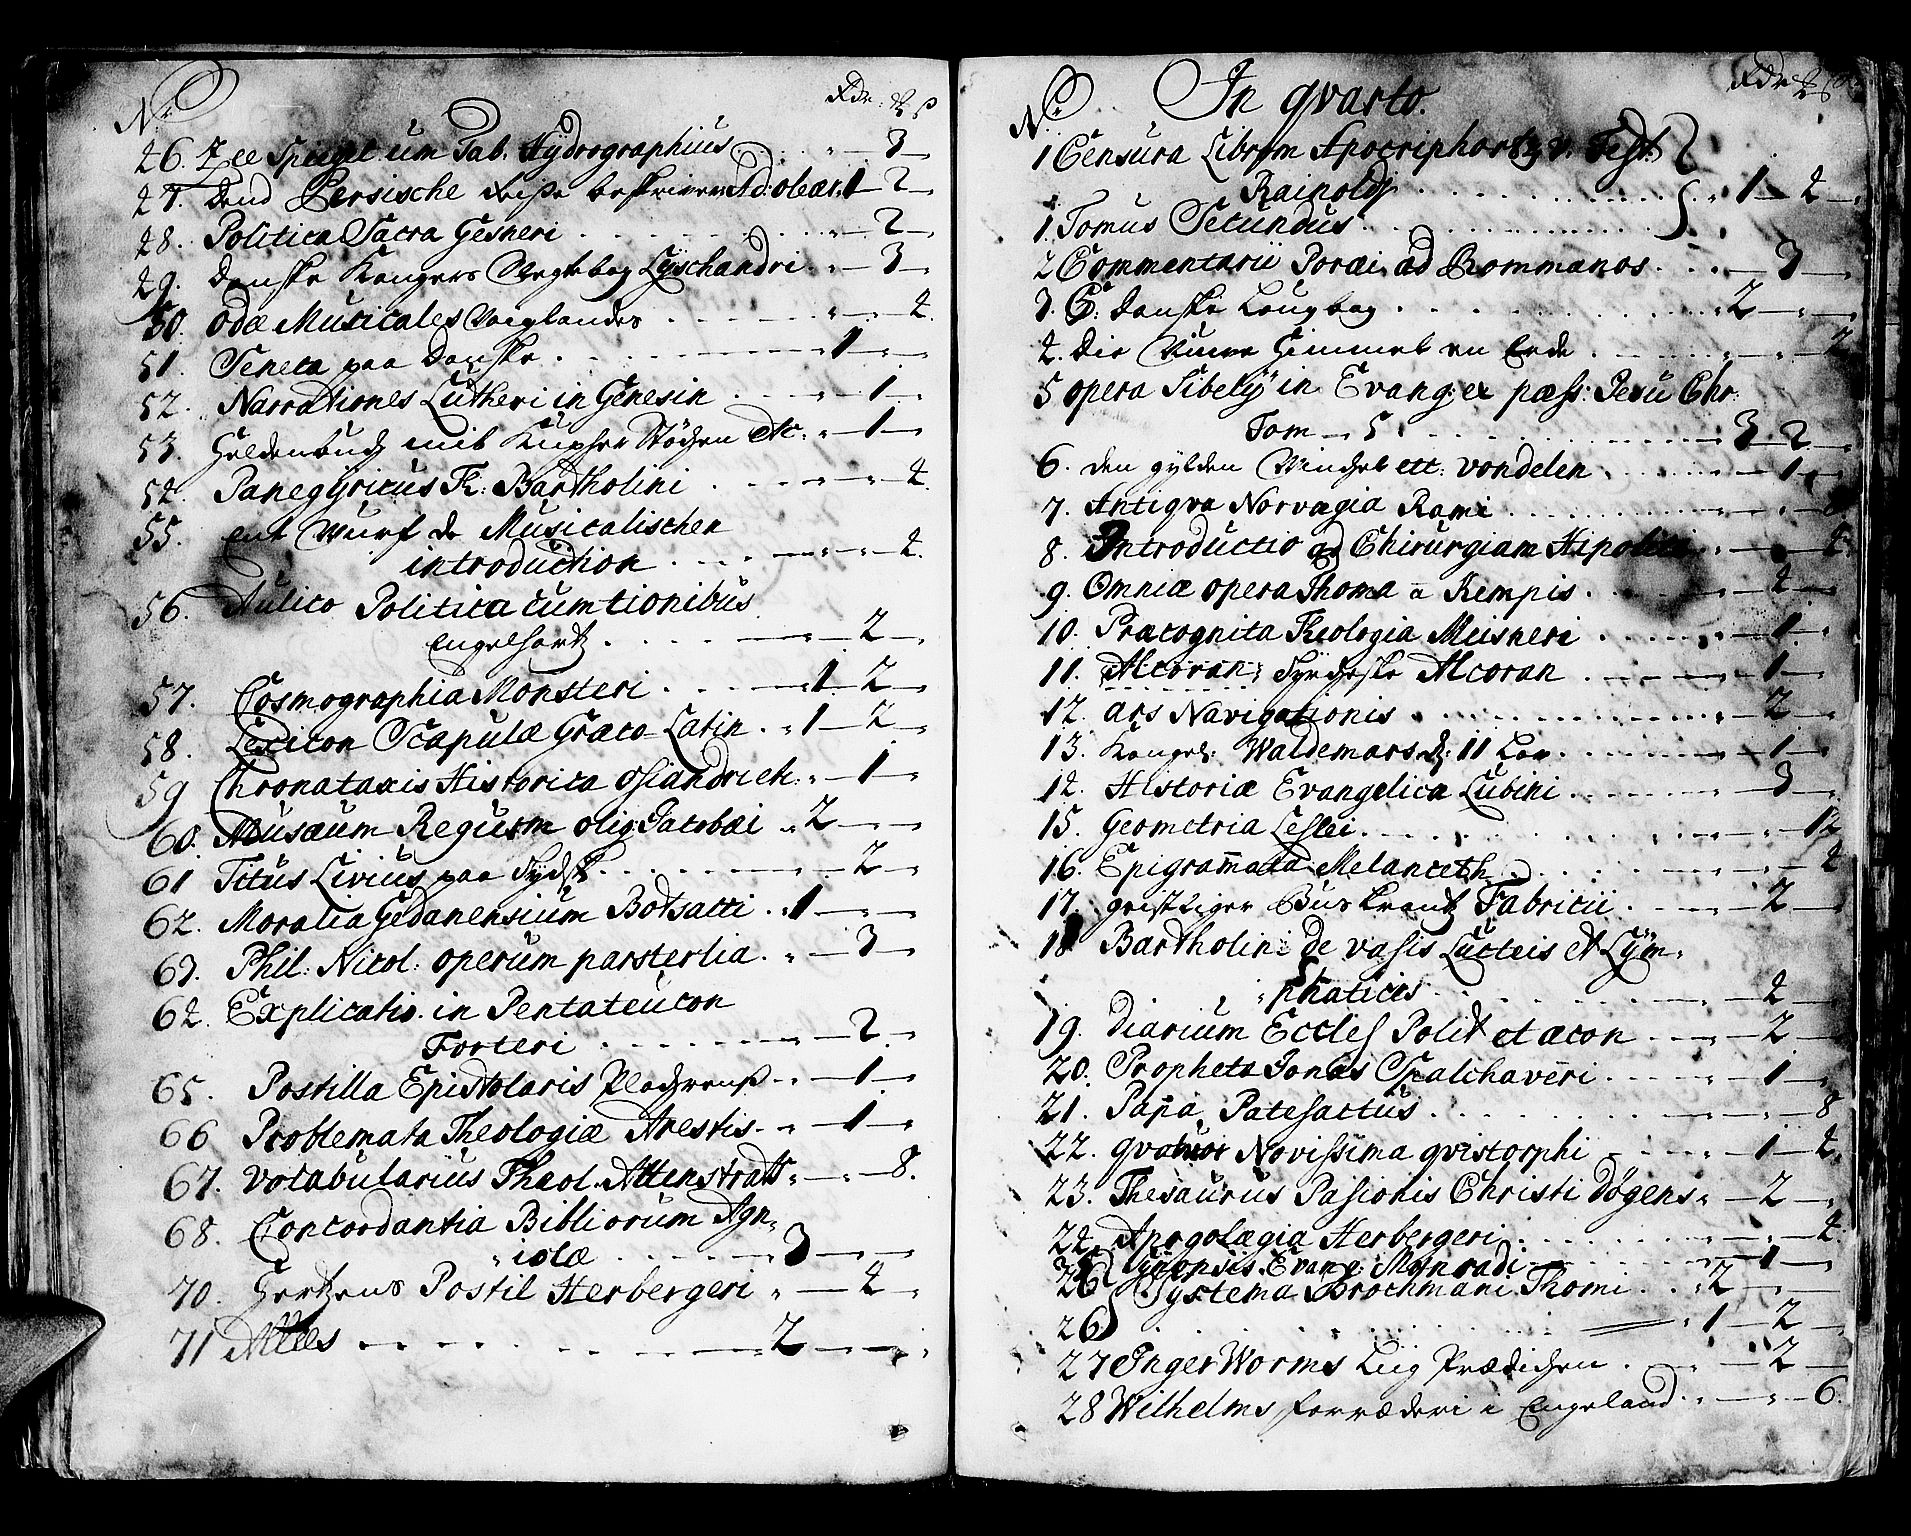 No Rdr: ...
46. Zee Spiegel um Tab. Hydrographius - 3 -
47. Dend Persische Reise beskriven Ad: olear: 1 - 2 -
48. Politica Sacra Gesneri - 2 -
49. Danske Kongers Slegtebog Lyschandri - 3 -
50. Odæ Musicales Voiglandes - 4.
51. Seneca paa Danske 1 -
52. Narrationes Lutheri in Genesin - 1 -
53. Heldenbuch mit Kupher Stöchen etc. - 1 -
54. Panegyricus Th: Bartholini - 4.
55. Ent Wurf de Musicalischen
introduction - 4.
56. Aulico Politica cumtionibus
Engelhart - 2 -
57. Cosmographia Monsteri 1 - 2 -
58. Lexicon Scapulæ Græco Latin 1 - 2 -
59 Chronataxis Historica Osiandri etc. - 1 -
60. Musæum Regusm olig: Jacobæi 2 -
61 Titus Livius paa Tydsk - 2 -
62. Moralia Gedanensium Botsacti 1 -
63. Phil: Nicol: operum parstertia - 3 -
64. Explicatio in Pentateucon
Forteri - 2 -
65. Postilla Epistolaris - 1 -
66 Problemata Theologiæ Arestis - 1 -
67. Vocabularius Theol. Altenstads - 8.
68. Concordantia Bibliorum Agn-
iolæ 3 -
70. Hertzens Postil Herbergeri - 4 -
71 Atlas 2 -
No In qvarto. Rdr
1 Censura Librom Apocriphor: v. Test:
Rainoldi 1 - 4 -
1. Tomus Secundus
2 Commentarii Poræi ad Rommanos - 3 -
3. C: 5 Danske Lougbog 2 -
4. Die Nuue Himmel en Erde - 2
5 Opera Sibely in Evang: ex pass: Jesu Chr:
Tom - 5 3 - 2 -
6. Den gylden Vinckel ett: vondelen - 1 -
7. Antiqva Norvagia Rami - 8
8. Introductio ad Chirurgiam Hipolit - 8
9. Omniæ opera Thoma a Kempis - 4 -
10. Præcognita Theologia Meisneri - 1 -
11. Alcoran: Tydeske Alcoran - 1 -
12. Ars Navigationis - 2 -
13. Kongel: Waldemars d: 11 Lov - 1 -
14. Historiæ Evangelica Lubini - 3 -
15. Geometria Leslei - 12
16. Epigram̄ata Melancth - 4
17. geistliger Fabricii - 2 -
18 Bartholini de vasis Lacteis et Lym-
phaticis - 4 -
19. Diarium Eccles Polit et æcon - 2 -
20. Propheta Jonas Spalchaveri - 1 -
21. Papa Patefactus - 8
22. qvatuor Novissima qvistorphi - 1 - 4.
23. Thesaurus Pasionis Christi Døgens - 2 -
24. Apogolægia Herbergeri - 4
25 Synopsis Evang: Monradi - 1 -
26 Systema Brochmani Thomi 2 -
26 1 - 2 -
27 Inger Worms Liig Prædichen - 2 -
28 Wilhelms forræderi i Engeland - 6.